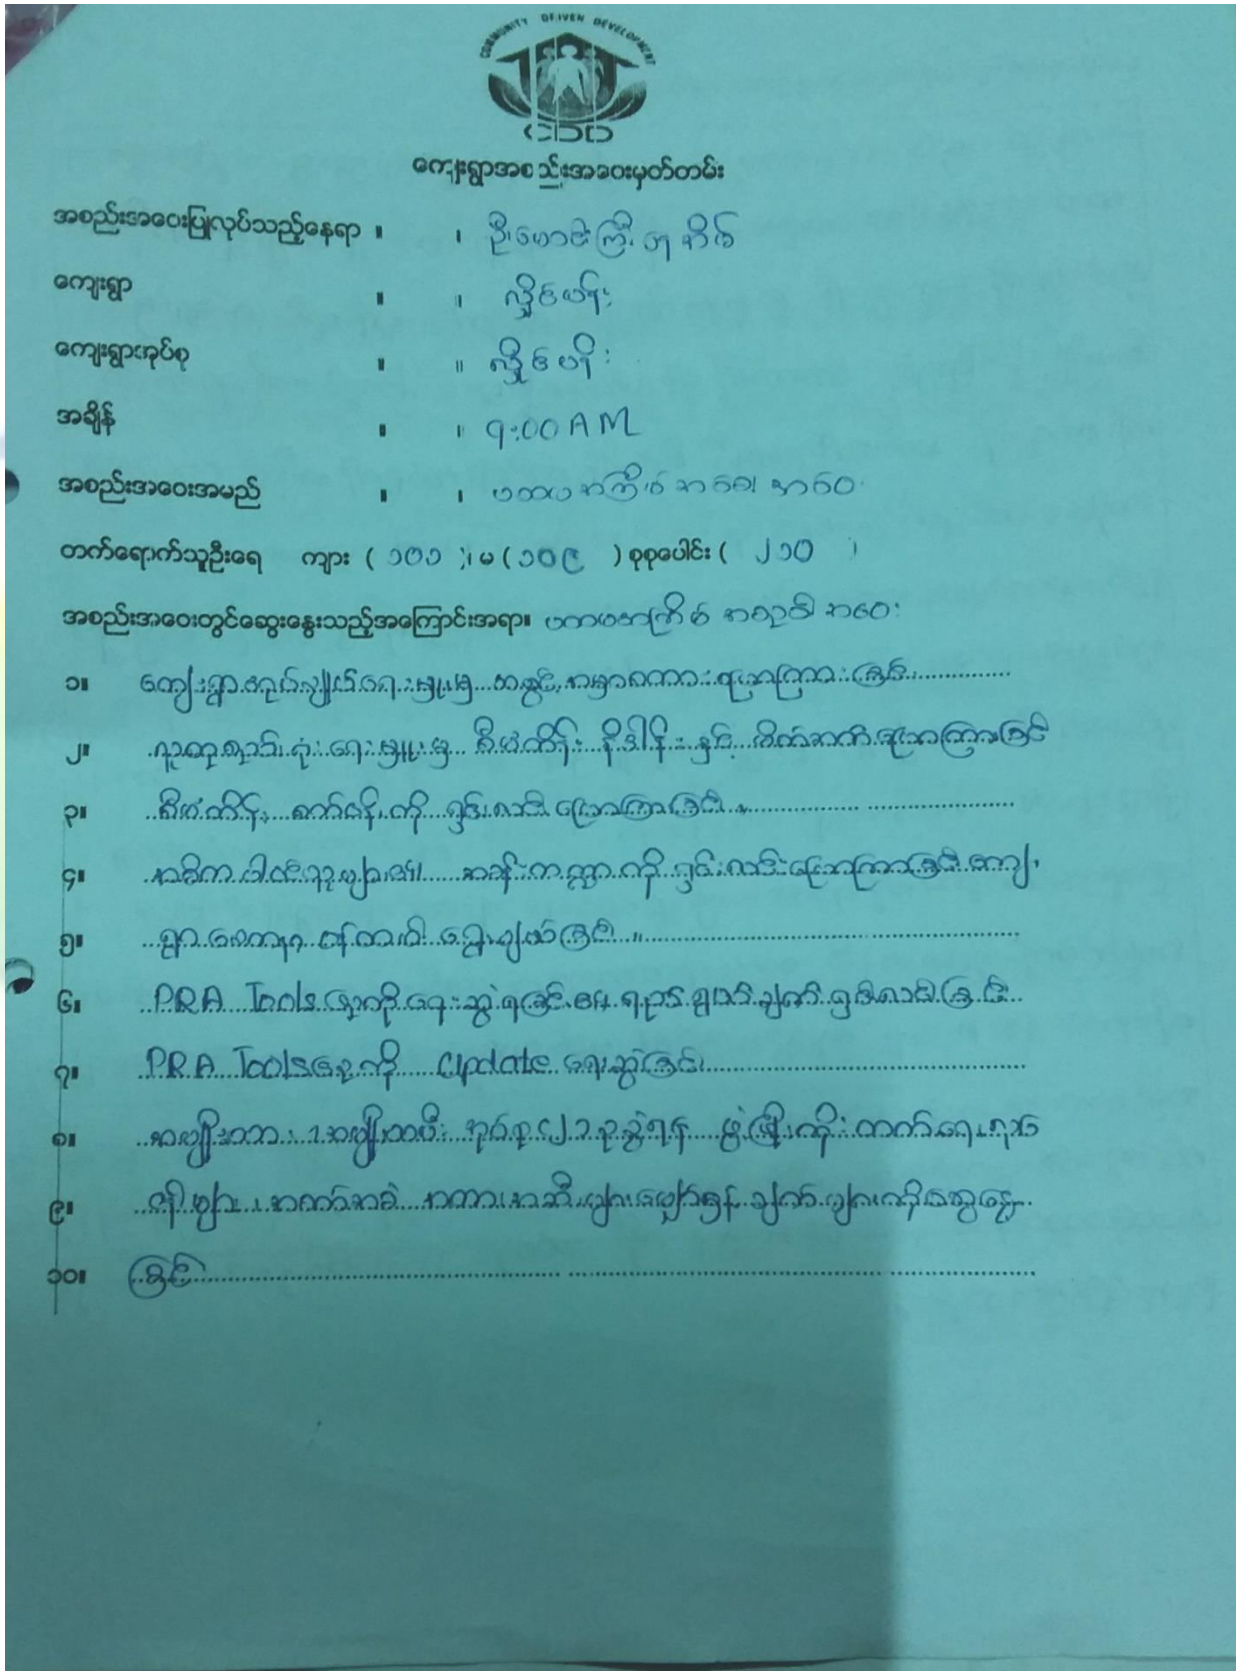 COMMUNITY DRIVEN DEVELOPMENT
CDD
ကျေးရွာအစည်းအဝေးမှတ်တမ်း
အစည်းအဝေးပြုလုပ်သည့်နေရာ ။ ။ ဦးမောင်ကြီး ၏ အိမ်
ကျေးရွာ ။ ။ လှိုင်ပန်း
ကျေးရွာအုပ်စု ။ ။ လှိုင်ပန်း
အချိန် ။ ။ 9:00 AM
အစည်းအဝေးအမည် ။ ။ ပထမအကြိမ် အစည်းအဝေး
တက်ရောက်သူဦးရေ ကျား ( ၁၀၁ )၊ မ ( ၁၀၉ ) စုစုပေါင်း ( ၂၁၀ )
အစည်းအဝေးတွင်ဆွေးနွေးသည့်အကြောင်းအရာ။ ပထမအကြိမ် အစည်းအဝေး
၁။ ကျေးရွာ အုပ်ချုပ်ရေးမှူးမှ အဖွင့် အမှာစကား ပြောကြားခြင်း
၂။ လူထု စည်းရုံးရေးမှူးမှ စီမံကိန်း နိဒါန်း နှင့် မိတ်ဆက် ပြောကြားခြင်း
၃။ စီမံကိန်း စက်ဝန်းကို ရှင်းလင်း ပြောကြားခြင်း ။
၄။ အဓိက ပါဝင်သူများ၏ အခန်းကဏ္ဍ ကို ရှင်းလင်းပြောကြားခြင်း ကျေး
၅။ ရွာ စေတနာ့ ဝန်ထမ်း ရွေးချယ်ခြင်း ။
၆။ PRA Tools များကို ရေးဆွဲရခြင်း၏ ရည်ရွယ်ချက် ရှင်းလင်းခြင်း
၇။ PRA Tools များကို Update ရေးဆွဲခြင်း
၈။ အမျိုးသား ၊ အမျိုးသမီး အုပ်စု (၂) စု ခွဲ၍ ဖွံ့ဖြိုးတိုးတက်ရေး လုပ်
၉။ ငန်းများ ၊ အခက်အခဲ အတားအဆီးများ မျှော်မှန်းချက်များကို ဆွေးနွေး
၁၀။ ခြင်း